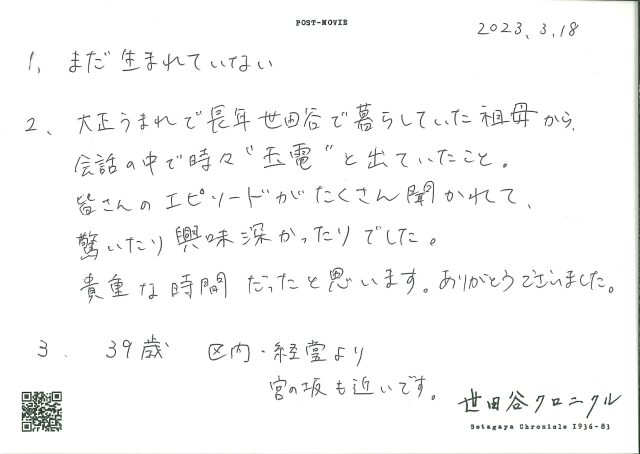 POST-MOVIE
2023.3.18
1、まだ生まれていない
2、大正うまれで長年世田谷で暮らしていた祖母から、
会話の中で時々“玉電”と出ていたこと。
皆さんのエピソードがたくさん聞かれて、
驚いたり興味深かったりでした。
貴重な時間だったと思います。ありがとうございました。
3. 39歳 区内・経堂より
宮の坂も近いです。
世田谷クロニクル
Setagaya Chronicle 1936-83